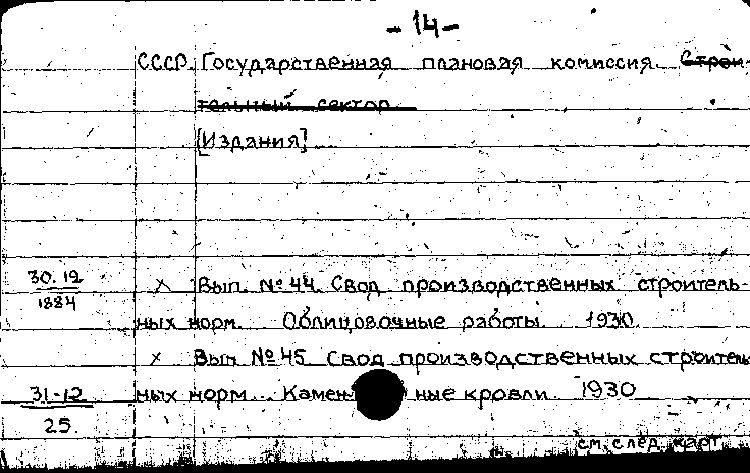 - 14 -
СССР. Государственная плановая комиссия. Строи-
тельный сектор.
[Издания]
30.12
1884
x Вып. №44. Свод производственных строитель-
ных норм. Облицовочные работы. 1930.
x Вып. №45. Свод производственных строитель
31-12
25.
ных норм. Камен ные кровли. 1930
см. след. карт.